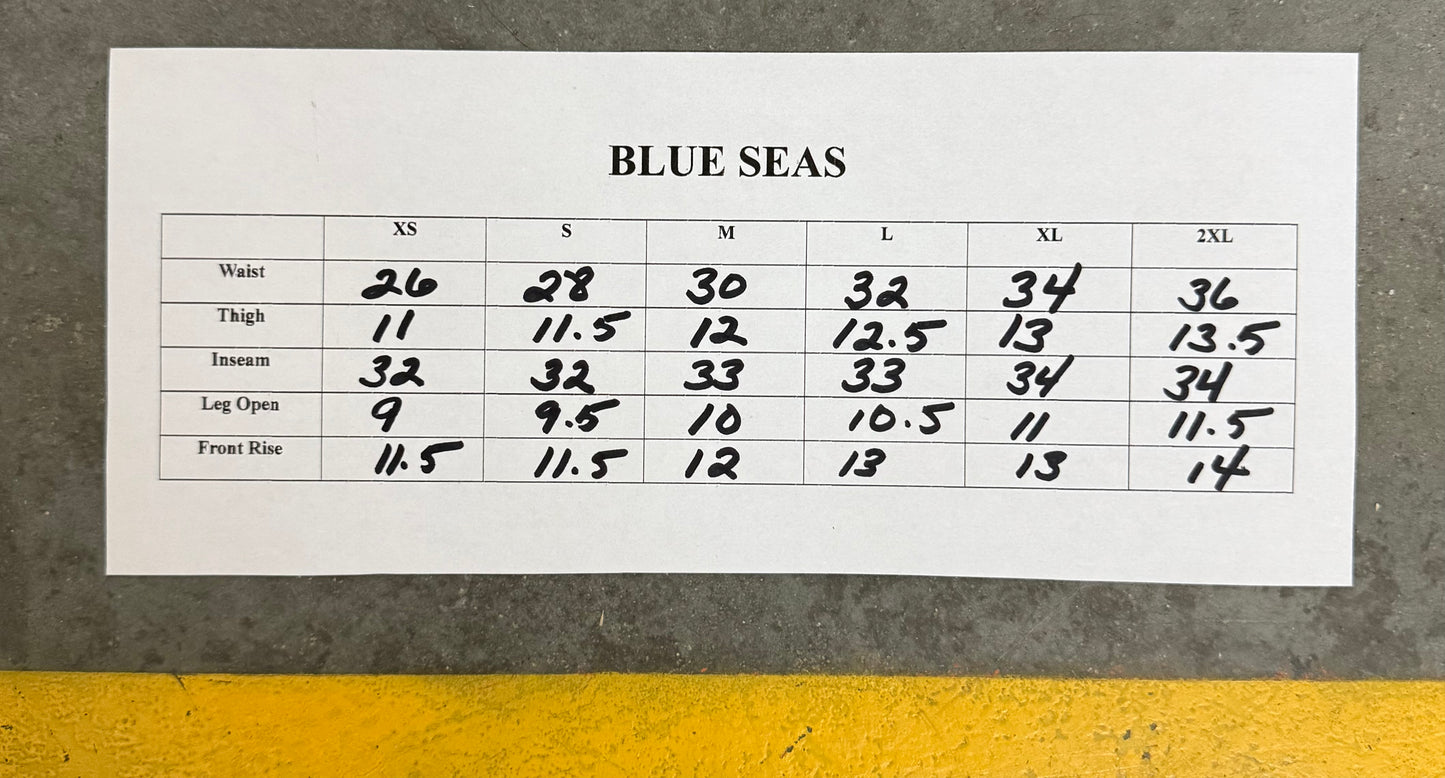 BLUE SEAS
XS S M L XL 2XL
Waist 26 28 30 32 34 36
Thigh 11 11.5 12 12.5 13 13.5
Inseam 32 32 33 33 34 34
Leg Open 9 9.5 10 10.5 11 11.5
Front Rise 11.5 11.5 12 13 13 14